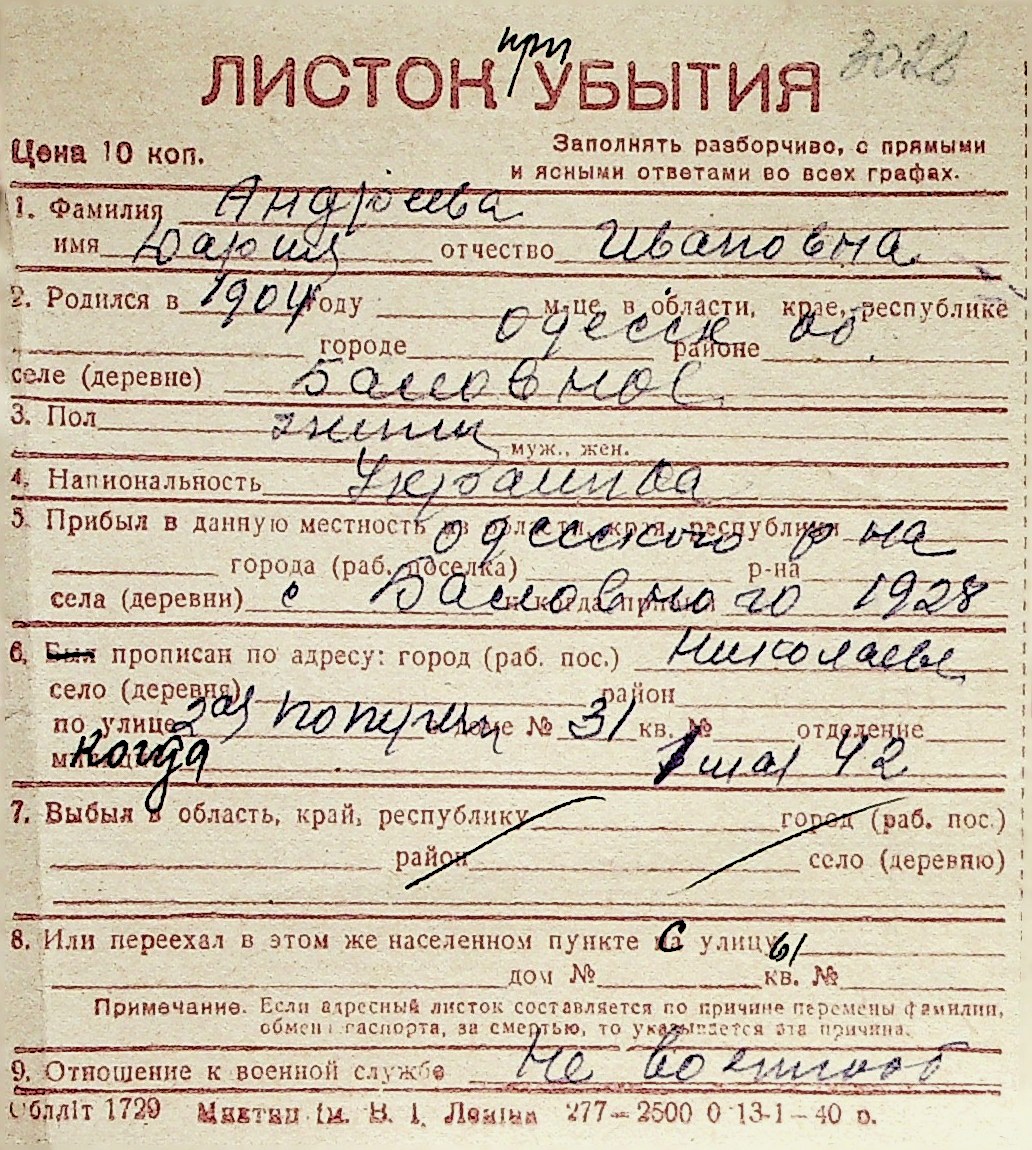 при 3028
ЛИСТОК УБЫТИЯ
Цена 10 коп.
Заполнять разборчиво, с прямыми
и ясными ответами во всех графах.
1. Фамилия Андреева
имя Дария отчество Ивановна
2. Родился в 1904 году м-це, в области, крае, республике
городе Одесск районе об.
селе (деревне) Баловное
3. Пол женщ
муж., жен.
4. Национальность Украинка
5. Прибыл в данную местность из области, края, республики одесского р на
города (раб. поселка) р-на
села (деревни) с Баловного и когда прибыл 1928
6. Был прописан по адресу: город (раб. пос.) Николаев
село (деревня) район
по улице 2ая попереч доме № 31 кв. № отделение
когда 1 мая 42
7. Выбыл в область, край, республику город (раб. пос.)
район село (деревню)
8. Или переехал в этом же населенном пункте с улицы
дом № кв. №
Примечание. Если адресный листок составляется по причине перемены фамилии,
обмена паспорта, за смертью, то указывается эта причина.
9. Отношение к военной службе Не военнооб
Облліт 1729 ім. В. І. Леніна 277—2500 0 13-1—40 р.